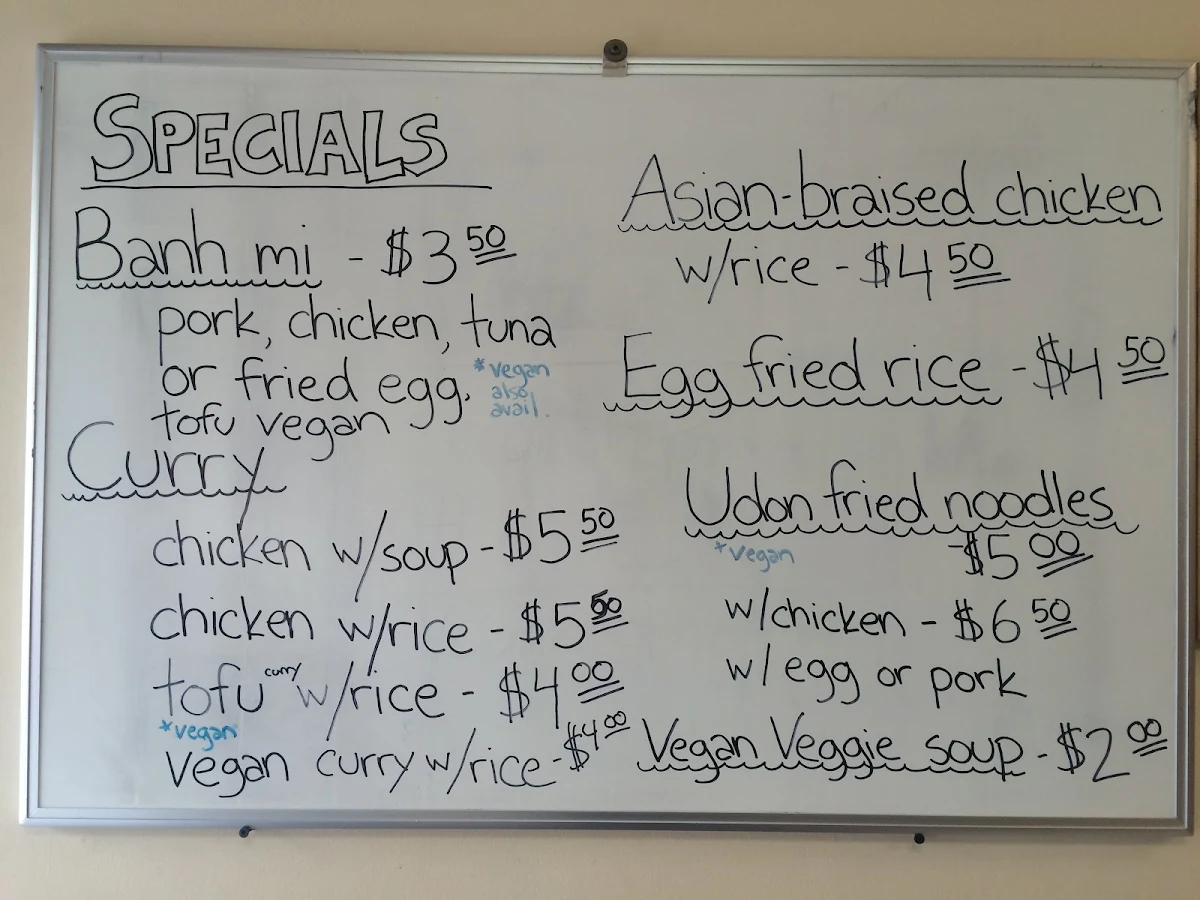 SPECIALS
Banh mi - $3 50
pork, chicken, tuna
or fried egg.
*vegan
also
avail.
tofu vegan
Curry
chicken w/soup - $5 50
chicken w/rice - $5 50
tofu curry w/rice - $4 00
*vegan
vegan curry w/rice - $4 00
Asian-braised chicken
w/rice - $4 50
Egg fried rice - $4 50
Udon fried noodles
*vegan
-$5 00
w/chicken - $6 50
w/ egg or pork
Vegan Veggie soup - $2 00